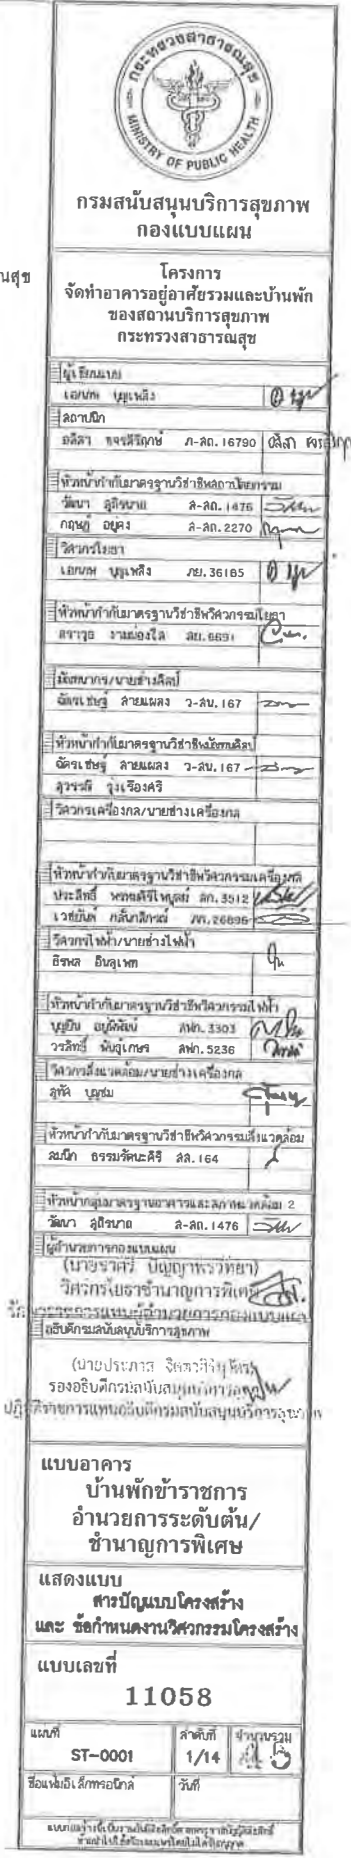 กระทรวงสาธารณสุข
MINISTRY OF PUBLIC HEALTH
กรมสนับสนุนบริการสุขภาพ
กองแบบแผน
ณสุข
โครงการ
จัดทำอาคารอยู่อาศัยรวมและบ้านพัก
ของสถานบริการสุขภาพ
กระทรวงสาธารณสุข
ผู้เขียนแบบ
เอกภพ บุญเพลิง
สถาปนิก
อลิสา ขจรศิริฤกษ์ ภ-สถ. 16790
หัวหน้ากำกับมาตรฐานวิชาชีพสถาปัตยกรรม
วัฒนา สุถิรนาถ ส-สถ. 1476
กฤษฎิ์ อยู่คง ส-สถ. 2270
วิศวกรโยธา
เอกภพ บุญเพลิง ภย. 36185
หัวหน้ากำกับมาตรฐานวิชาชีพวิศวกรรมโยธา
สราวุธ งามผ่องใส สย. 6691
มัณฑนากร/นายช่างศิลป์
ฉัตรเชษฐ์ สายแผลง ว-สน. 167
หัวหน้ากำกับมาตรฐานวิชาชีพมัณฑนศิลป์
ฉัตรเชษฐ์ สายแผลง ว-สน. 167
สุวรรณี รุ่งเรืองศรี
วิศวกรเครื่องกล/นายช่างเครื่องกล
หัวหน้ากำกับมาตรฐานวิชาชีพวิศวกรรมเครื่องกล
ประสิทธิ์ สก. 3512
เวชยันต์ ภก. 26896
วิศวกรไฟฟ้า/นายช่างไฟฟ้า
ธีรพล อินสุเพท
หัวหน้ากำกับมาตรฐานวิชาชีพวิศวกรรมไฟฟ้า
บุญยืน อยู่พิพัฒน์ สฟก. 3303
วรสิทธิ์ พันธุ์เกษร สฟก. 5236
วิศวกรสิ่งแวดล้อม/นายช่างเครื่องกล
สุทัศ บุญชม
หัวหน้ากำกับมาตรฐานวิชาชีพวิศวกรรมสิ่งแวดล้อม
สมนึก ธรรมรัตนะคีรี สส. 164
หัวหน้ากลุ่มมาตรฐานอาคารและสภาพแวดล้อม 2
วัฒนา สุถิรนาถ ส-สถ. 1476
ผู้อำนวยการกองแบบแผน
วิศวกรโยธาชำนาญการพิเศษ
รักษาราชการแทนผู้อำนวยการกองแบบแผน
อธิบดีกรมสนับสนุนบริการสุขภาพ
รองอธิบดีกรมสนับสนุนบริการสุขภาพ
ปฏิบัติราชการแทนอธิบดีกรมสนับสนุนบริการสุขภาพ
แบบอาคาร
บ้านพักข้าราชการ
อำนวยการระดับต้น/
ชำนาญการพิเศษ
แสดงแบบ
สารบัญแบบโครงสร้าง
และ ข้อกำหนดงานวิศวกรรมโครงสร้าง
แบบเลขที่
11058
แผ่นที่ ลำดับที่ จำนวนรวม
ST-0001 1/14
ชื่อแฟ้มอิเล็กทรอนิกส์ วันที่